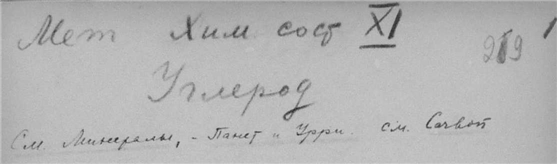 Мет Хим сост XI
Углерод
См. Минералы, - Панет и Урри. см.